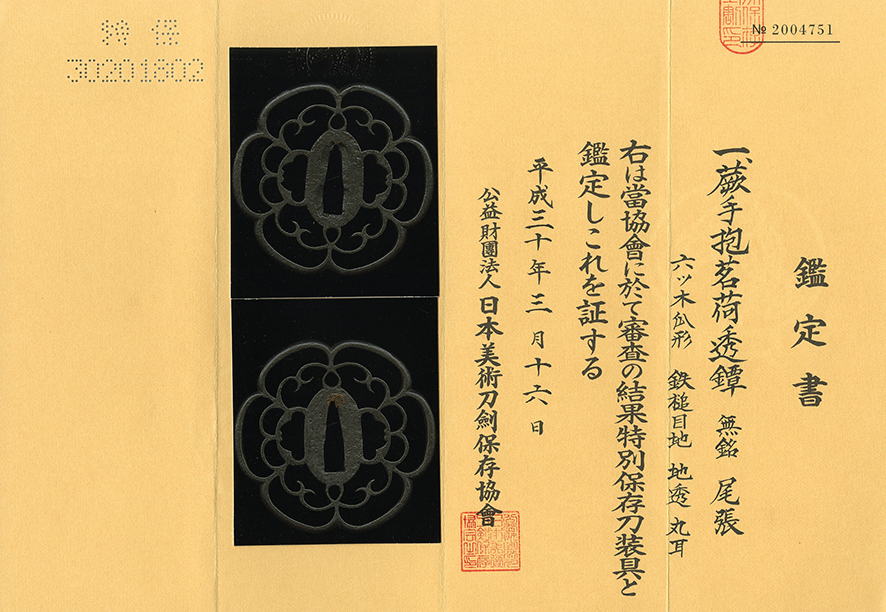 № 2004751
鑑定書
一、蕨手抱茗荷透鐔 無銘 尾張
六ッ木瓜形 鉄槌目地 地透 丸耳
右は當協會に於て審査の結果特別保存刀装具と
鑑定しこれを証する
平成三十年三月十六日
公益財團法人 日本美術刀劍保存協會
特 保
30201802